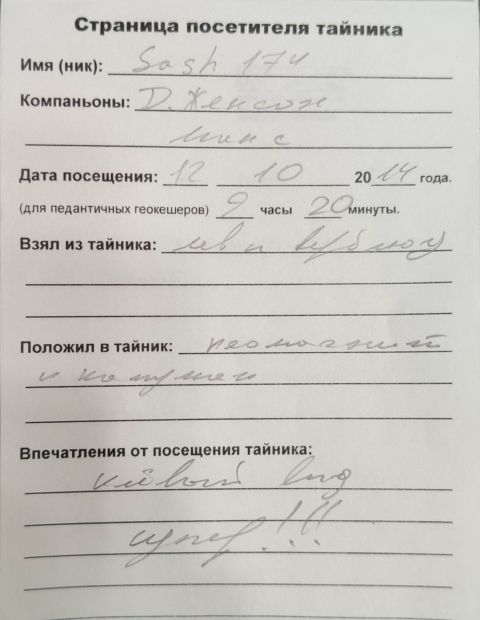 Страница посетителя тайника
Имя (ник): Sash 174
Компаньоны: Д. Женсон
Дата посещения: 12 10 2014 года.
(для педантичных геокешеров) 9 часы 20 минуты.
Взял из тайника: лев и верблюд
Положил в тайник: неомагнит
и
Впечатления от посещения тайника:
клёвый вид
супер!!!